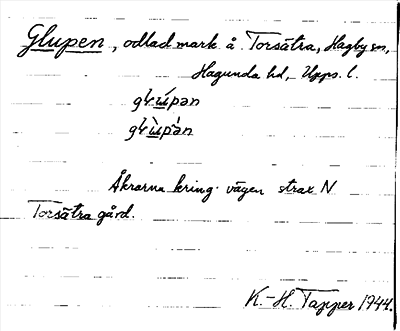 Glupen, odlad mark å Torsätra, Hagby sn,
Hagunda hd, Upps. l.
Åkrarna kring vägen strax N
Torsätra gård.
K.-H. Tapper 1944.